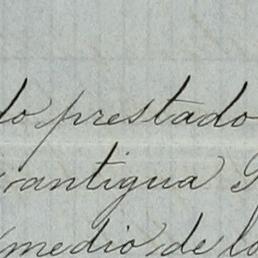 do prestado
antigua
medio de lo